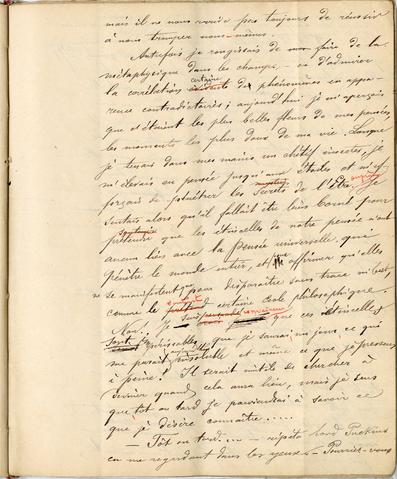 mais il ne nous réussit pas toujours de réussir
à nous tromper nous-mêmes.
Autrefois je rougissais de faire de la
métaphysique dans les champs, — et d'admirer
la corrélation certaine évidente de phénomènes en appa-
rence contradictoires; aujourd'hui je m'aperçois
que c'étaient les plus belles fleurs de mes pensées,
les moments les plus doux de ma vie. Lorsque
je tenais dans mes mains un chétif insecte, je
m'élevais en pensée jusqu'aux Étoiles et m'ef-
forçais de pénétrer les secrets de l'Être. Je
sentais alors qu'il fallait être bien borné pour
prétendre que les étincelles de notre pensée n'ont
aucun lien avec la Pensée universelle qui
pénètre le monde entier, et affirmer qu'elles
ne se manifestent pour disparaître sans trace
comme le certaine école philosophique.
Non, je suis que ces étincelles
sont indivisibles, que je saurai un jour ce qui
me paraît insoluble et même ce que je pressens
à peine! Il serait inutile de chercher à
deviner quand cela aura lieu, mais je sens
que tôt ou tard je parviendrai à savoir ce
que je désire connaître.....
— Tôt ou tard..... — répéta lord
en me regardant dans les yeux — Pourriez-vous